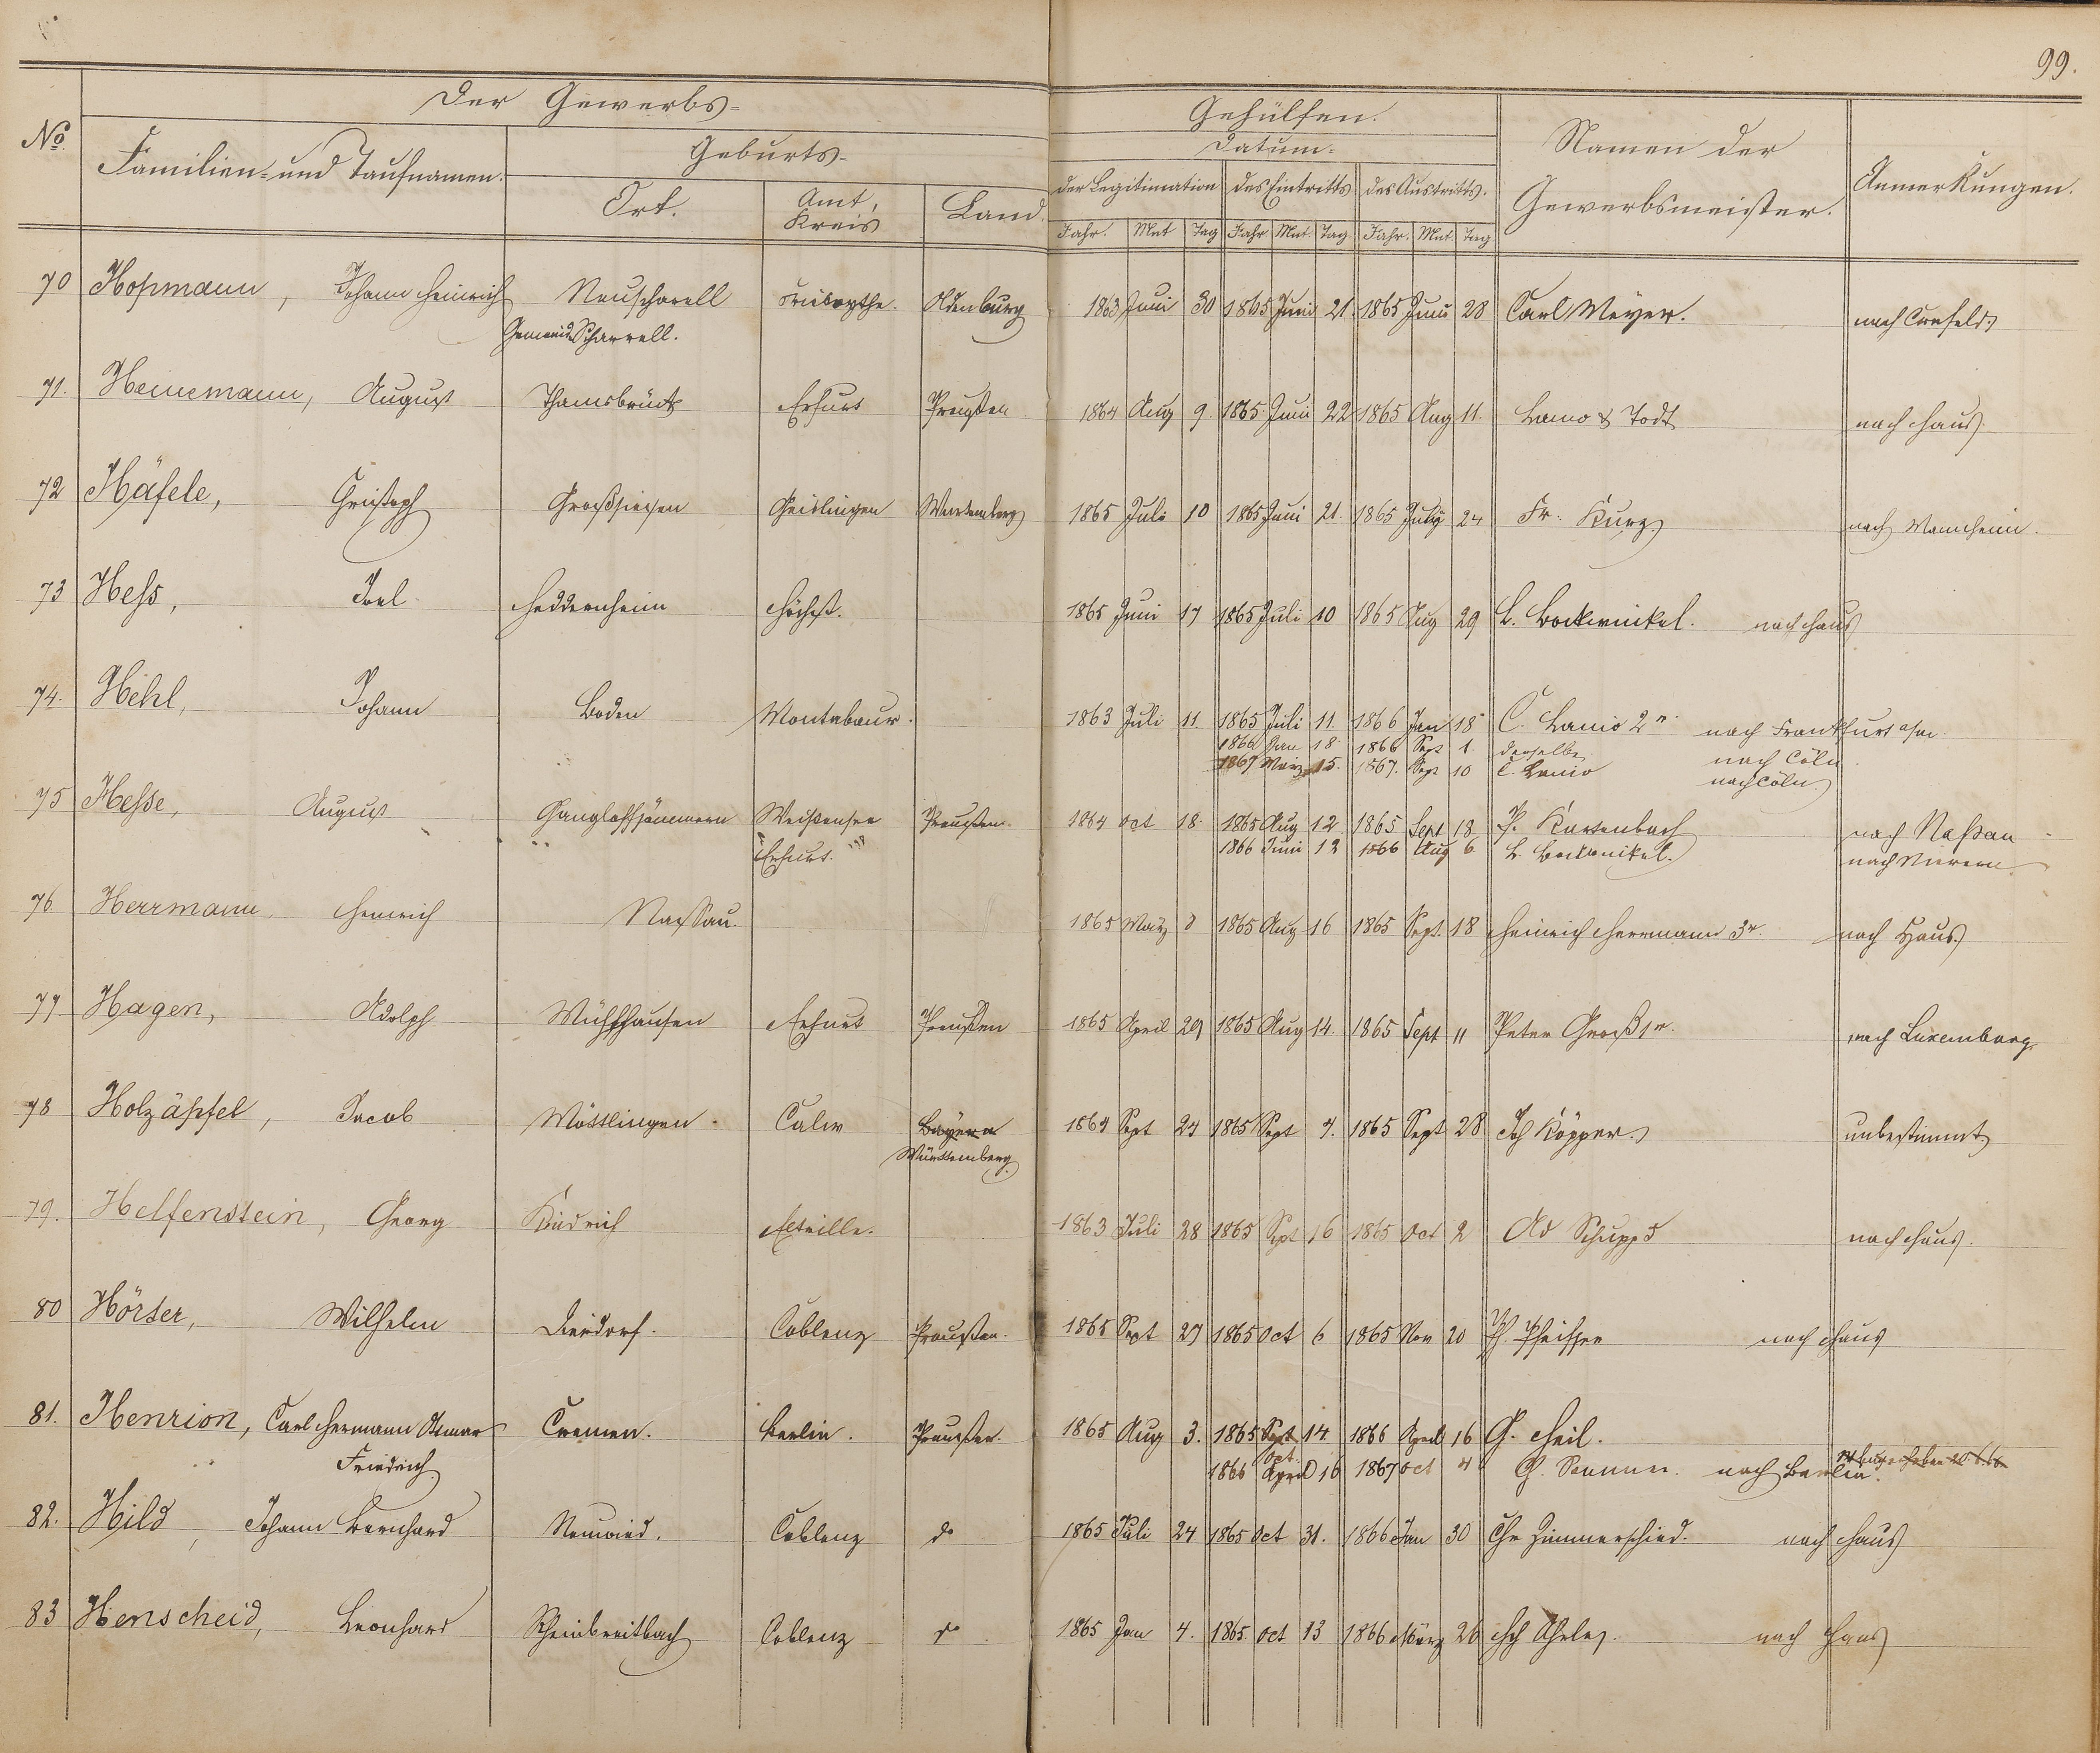 99.
Der Gewerbs-
Gehülfen.
No.
Familien- und Taufnamen.
Geburts-
Ort.
Amt, Kreis
Land.
Datum.
der Legitimation
des Eintritts
des Austritts.
Jahr. Mnt Tag Jahr. Mnt. Tag Jahr. Mnt. Tag
Namen der Gewerbsmeister.
Anmerkungen.
70 Hopmann, Johann Heinrich Neuscharell Oldenburg 1863 Juni 30 1865 Juni 21. 1865 Juni 28 Carl Meyer. nach Crefeld.
Gemeinde Scharrell.
71. Heinemann, August Thamsbrück Erfurt Preußen 1864 Aug 9. 1865 Juni 22 1865 Aug 11. & Todt nach Haus
72 Häfele, Christoph Großsüssen Geislingen Würtemberg 1865 Juli 10 1865 Juni 21. 1865 July 24 Fr. Kurz nach Mannheim.
73 Hess, Joel Heddernheim Höchst. 1865 Juni 17 1865 Juli 10 1865 Aug 29 L. nach Haus
74. Hehl, Johann Boden Montabaur. 1863 Juli 11. 1865 Juli 11. 1866 Jan 18 C. Lanio 2r. nach Frankfurt a/m
1866 Jan 18 1866 Sept 1. derselbe nach Cöln
1867 März 15. 1867. Sept 10 C. Lanio nach Cöln.
75 Hesse, August Gangloffsömmern Weißensee Preußen 1864 Oct 18. 1865 Aug 12 1865 Sept 18 P. Kurtenbach nach Naßau
Erfurt. 1866 Juni 12 1866 Aug 6 L.
76. Herrmann Heinrich Nassau. 1865 März 8 1865 Aug 16 1865 Sept. 18 Heinrich Herrmann 3r. nach Haus.
77. Hagen, Adolph Mühlhausen Erfurt Preußen 1865 April 29 1865 Aug 14. 1865 Sept 11 Peter Groß 1r. nach Luxemburg
78 Holzäpfel, Jacob Möttlingen. Calw Bayern 1864 Sept 24 1865 Sept 4. 1865 Sept 28 Joh Köpper. unbestimmt
Würtemberg.
79. Helfenstein, Georg Kidrich Eltville. 1863 Juli 28 1865 Sept 16 1865 Oct 2 Ad Schupp nach Haus.
80 Hörter, Wilhelm Dierdorf. Coblenz Preußen. 1865 Sept 27 1865 Oct 6 1865 Nov 20 Ph. Pfeiffer nach Haus
81. Henrion, Carl Hermann Otmar Cremen. Berlin. Preußen. 1865 Aug 3. 1865 Sept 14. 1866 April 16 G. Heil.
Friedrich Oct. 1866 April 16 1867 Oct 4 G. Sommer. nach Berlin.
82. Hild, Johann Bernhard Neuwied. Coblenz do 1865 Juli 24 1865 Oct 31. 1866 Jan 30 Chr Zimmerschied. nach Haus
83 Henscheid, Leonhard Rheinbreitbach Coblenz do 1865 Jan 4. 1865. Oct 13 1866 März 26 nach Haus